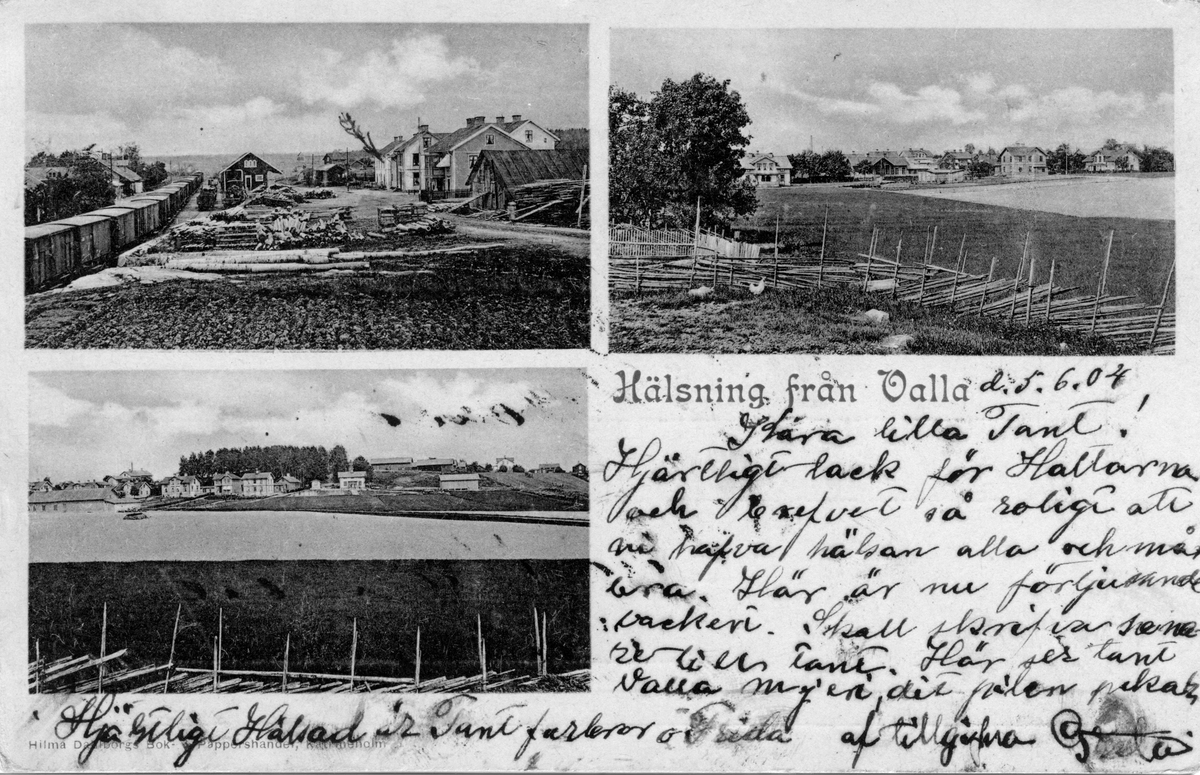 Hälsning från Valla d. 5.6.04
Kära lilla Tant!
Hjärtligt tack för Hattarna
och brefvet så roligt att
ni hafva hälsan alla och må
bra. Här är nu förtjusande
vackert. Skall skrifva sena
re till Tant. Här ser tant
Valla mejeri, dit pilen pekar
Hjärtligt Hälsad är Tant farbror o Frida af tillgifna
Hilma Dahlborgs Bok- & Pappershandel, Katrineholm